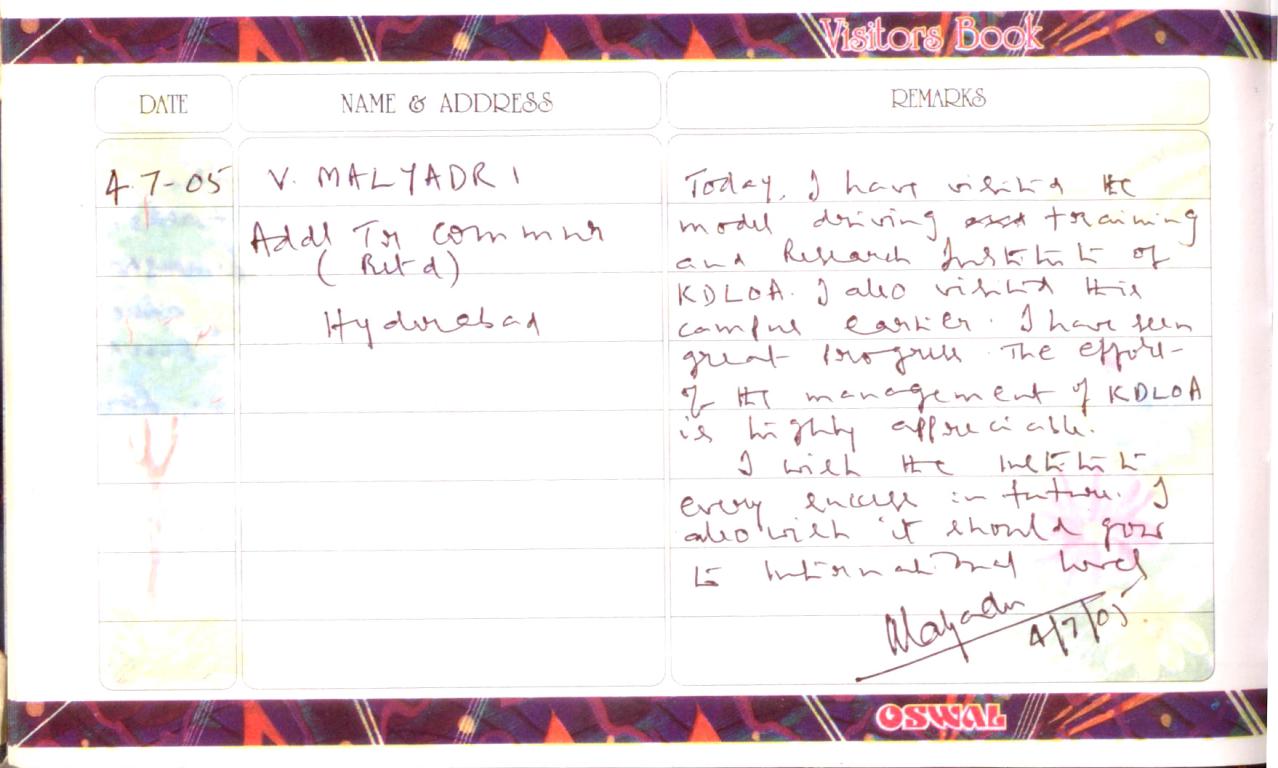 Visitors Book
DATE NAME & ADDRESS REMARKS
4-7-05 V. MALYADRI
Addl Tr Commnr
(Retd)
Hyderabad
Today, I have visited the
model driving training
and Research Institute of
KDLOA. I also visited this
campus earlier. I have seen
great progress. The effort
of the management of KDLOA
is highly appreciable.
I wish the Institute
every success in future. I
also wish it should grow
to International level
Malyadri
4/7/05
OSWAL